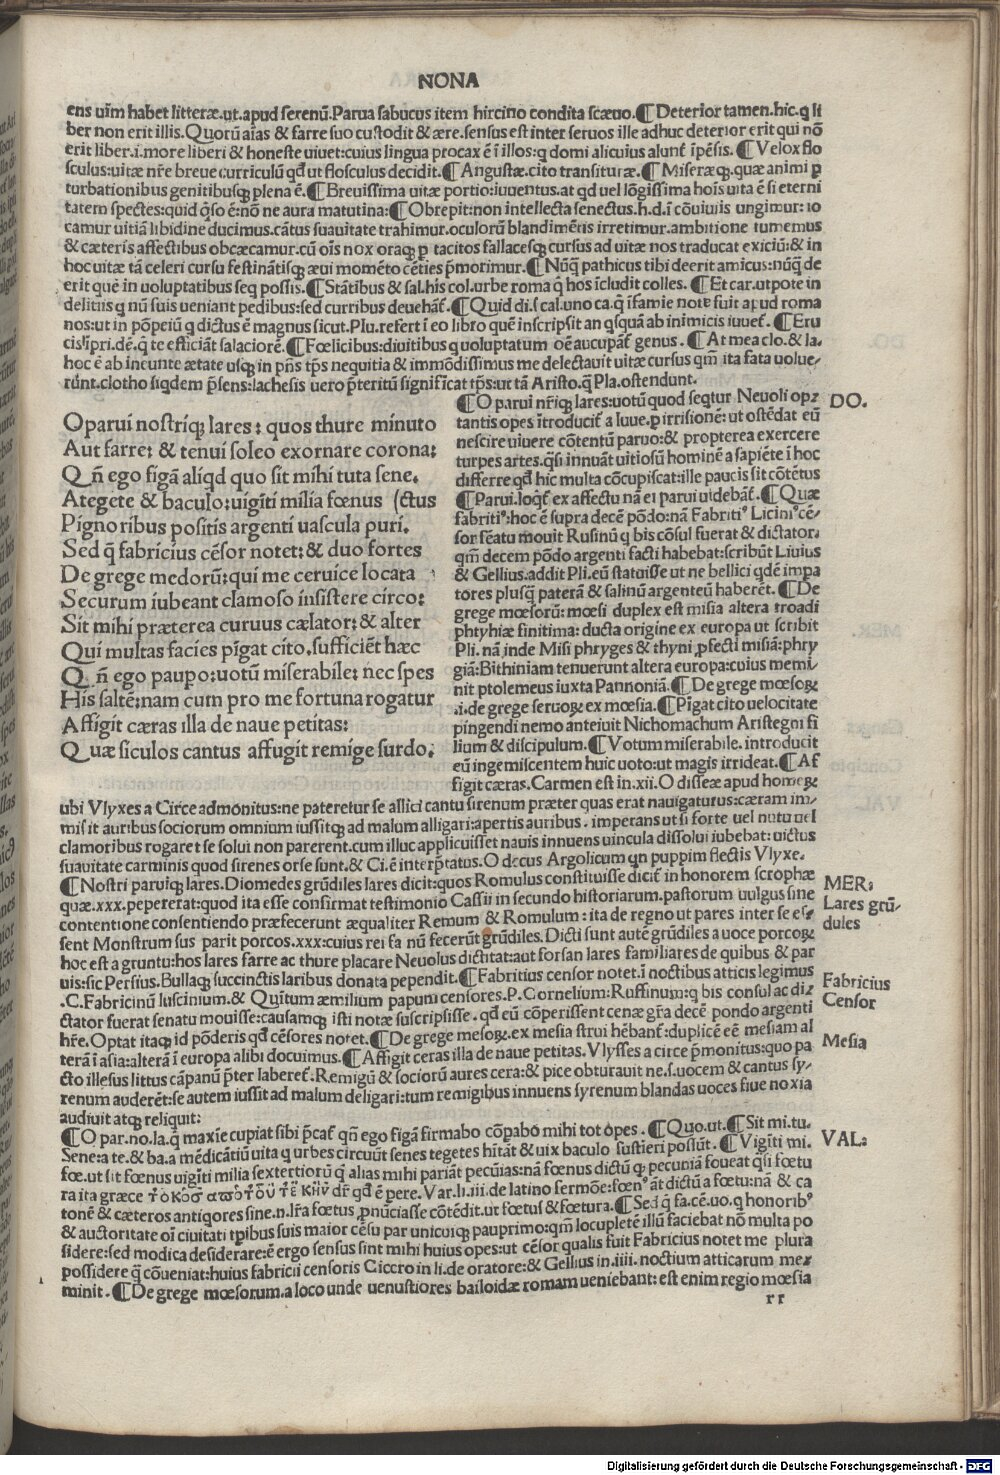 NONA
ens uim habet litteræ.ut.apud serenũ.Parua sabucus item hircino condita scæuo.¶Deterior tamen.hic.q li
ber non erit illis.Quorũ aias & farre suo custodit & ære.sensus est inter seruos ille adhuc deterior erit qui nõ
erit liber.i.more liberi & honeste uiuet:cuius lingua procax ē ī illos:q domi alicuius alunt̃ ĩpẽsis.¶Velox flo
sculus:uitæ nr̃e breue curriculũ qd̃ ut flosculus decidit.¶Angustæ.cito transituræ.¶Miseræq̃.quæ animi ꝑ
turbationibus genitibusq̃ plena ē.¶Breuissima uitæ portio:iuuentus.at qd uel lõgissima hois uita ē si eterni
tatem spectes:quid q̃so ē:nõ ne aura matutina:¶Obrepit:non intellecta senectus.h.d.ĩ cõuiuiis ungimur:io
camur uitiã libidine ducimus.cãtus suauitate trahimur.oculorũ blandimẽtis irretimur.ambitione tumemus
& cæteris affectibus obcæcamur.cũ oĩs nox oraq̃ ꝑ tacitos fallacesq̃ cursus ad uitæ nos traducat exiciũ:& in
hoc uitæ tã celeri cursu festinãtisq̃ æui momẽto cẽties p̃morimur.¶Nũq̃ pathicus tibi deerit amicus:nũq̃ de
erit quē in uoluptatibus seq possis.¶Stãtibus & sal.his col.urbe roma q̃ hos ĩcludit colles.¶Et car.utpote in
delitiis q nũ suis ueniant pedibus:sed curribus deuehãt̃.¶Quid di.s cal.uno ca.q̃ ĩfamie note fuit apud roma
nos:ut in põpeiũ q dictus ē magnus sicut.Plu.refert ĩ eo libro quē inscripsit an qsquã ab inimicis iuuet̃.¶Eru
cis:lipri.dẽ.q̃ te esticiãt salaciorē.¶Fœlicibus:diuitibus q uoluptatum oē aucupãt̃ genus.¶At mea clo.& la.
hoc ē ab ineunte ætate usq̃ in pñs tp̃s nequitia & immõdissimus me delectauit uitæ cursus qm̃ ita fata uolue-
rũnt.clotho siqdem p̃sens:lachesis uero p̃teritũ significat tp̃s:ut tã Aristo.q̃ Pla.ostendunt.
O parui nostriq̃ lares: quos thure minuto
Aut farre: & tenui soleo exornare corona:
Q ñ ego figã aliqd quo sit mihi tuta sene.
A tegete & baculo:uigĩti milia fœnus (ctus
Pignoribus positis argenti uascula puri.
Sed q̃ fabricius cẽsor notet:& duo fortes
De grege medorũ:qui me ceruice locata
Securum iubeant clamoso insistere circo:
Sit mihi præterea curuus cælator:& alter
Qui multas facies pĩgat cito.sufficiẽt hæc
Q ñ ego paupo:uotũ miserabile: nec spes
His saltē:nam cum pro me fortuna rogatur
Affigit cæras illa de naue petitas:
Quæ siculos cantus affugit remige surdo.
¶O parui nr̃iq̃ lares:uotũ quod seqtur Neuoli op-
DO.
tantis opes ĩtroducit̃ a Iuue.ꝑ irrisionē: ut ostẽdat eũ
nescire uiuere cõtentũ paruo:& propterea exercere
turpes artes.q̃si innuãt uitiosũ hominē a sapiẽte ĩ hoc
differre qd̃ hic multa cõcupiscat:ille paucis sit cõtẽtus
¶Parui.loq̃t̃ ex affectu nã ei parui uidebãt̃.¶Quæ
fabriti':hoc ē supra decē põdo:nã Fabriti' Licini' cẽ-
sor sẽatu mouit Rufinũ q bis cõsul fuerat & dictator.
qm̃ decem põdo argenti facti habebat:scribũt Liuius
& Gellius.addit Pli.eũ statuisse ut ne bellici qdē impa
tores plusq̃ paterã & salinũ argenteũ haberẽt.¶De
grege mœsorũ: mœsi duplex est misia altera troadi
phtyhiæ finitima: ducta origine ex europa ut scribit
Pli. nã inde Misi phryges & thyni ꝓfecti misiã:phry
giã:Bithiniam tenuerunt altera europa:cuius memi-
nit ptolemeus iuxta Pannoniã.¶De grege mœsoꝝ
.i.de grege seruoꝝ ex mœsia.¶Pĩgat cito uelocitate
pingendi nemo anteiuit Nichomachum Aristegni fi
lium & discipulum.¶Votum miserabile. introducit
eũ ingemiscentem huic uoto:ut magis irrideat.¶Af
figit cæras.Carmen est in.xii.O disseæ apud homeꝝ
ubi Vlyxes a Circe admonitus:ne pateretur se allici cantu sirenum præter quas erat nauigaturus:cæram im-
misit auribus sociorum omnium iussitq̃ ad malum alligari:apertis auribus. imperans ut si forte uel nutu uel
clamoribus rogaret se solui non parerent.cum illuc applicuisset nauis innuens uincula dissolui iubebat: uictus
suauitate carminis quod sirenes orse sunt.& Ci.ē interp̃tatus.O decus Argolicum qn puppim flectis Vlyxe.
¶Nostri paruiq̃ lares. Diomedes grũdiles lares dicit:quos Romulus constituisse dicit̃ in honorem scrophæ
MER:
quæ.xxx.pepererat:quod ita esse confirmat testimonio Cassii in secundo historiarum.pastorum uulgus sine
Lares grũ-
dules
contentione consentiendo præfecerunt æqualiter Remum & Romulum: ita de regno ut pares inter se es-
sent Monstrum sus parit porcos.xxx:cuius rei fa nũ fecerũt grũdiles.Dicti sunt autē grũdiles a uoce porcoꝝ
hoc est a gruntu:hos lares farre ac thure placare Neuolus dictitat:aut forsan lares familiares de quibus & par
uis:sic Persius.Bullaq̃ succinctis laribus donata pependit.¶Fabritius censor notet.ĩ noctibus atticis legimus
Fabricius
Censor
.C.Fabricinũ luscinium.& Quĩtum æmilium papum censores.P.Cornelium:Ruffinum:q bis consul ac di-
ctator fuerat senatu mouisse:causamq̃ isti notæ suscripsisse.qd̃ eũ cõperissent cenæ gr̃a decē pondo argenti
hr̃e.Optat itaq̃ id põderis qd̃ cẽsores notet.¶De grege mesoꝝ.ex mesia strui hẽbant̃:duplicē eē mesiam al
Mesia
terã ĩ asia:alterã ĩ europa alibi docuimus.¶Affigit ceras illa de naue petitas.Vlysses a circe p̃monitus:quo pa
cto illesus littus cãpanũ p̃ter laberet̃.Remigũ & sociorũ aures cera:& pice obturauit ne.s.uocem & cantus sy-
renum auderẽt:se autem iussit ad malum deligari:tum remigibus innuens syrenum blandas uoces siue noxia
audiuit atq̃ reliquit:
¶O par.no.la.q̃ maxie cupiat sibi p̃cat̃ qñ ego figã firmabo cõpabo mihi tot opes.¶Quo.ut.¶Sit mi.tu.
VAL:
Sene:a te.& ba.a mẽdicãtiũ uita q urbes circuũt senes tegetes hĩtãt & uix baculo sustieri possũt.¶Vigĩti mi.
fœ.ut sit fœnus uigĩti milia sextertiorũ q̃ alias mihi pariãt pecũias:nã fœnus dictũ q̃ pecuniã foueat q̃si fœtu
ra ita græce τὸκοσ απὸ τοῦ τὲ κην dr̃ qd̃ ē pere. Var.li.iii.de latino sermõe:fœn' ãt dictũ a fœtu:nã & ca
tonē & cæteros antiqores sine.n.lr̃a fœtus ꝓnũciasse cõtẽdit.ut fœtus & fœtura.¶Sed q̃ fa.cẽ.uo.q honorib'
& auctoritate oĩ ciuitati tp̃ibus suis maior cẽsu par unicuiq̃ pauprimo:qm̃ locupletē illũ faciebat nõ multa po
sidere:sed modica desiderare:ē ergo sensus sint mihi huius opes:ut cẽsor qualis fuit Fabricius notet me plura
possidere q̃ cõueniat:huius fabricii censoris Cicero in li.de oratore:& Gellius in.iiii.noctium atticarum me-
minit.¶De grege mœsorum.a loco unde uenustiores baiolidæ romam ueniebant: est enim regio mœsia
rr
Digitalisierung gefördert durch die Deutsche Forschungsgemeinschaft - DFG